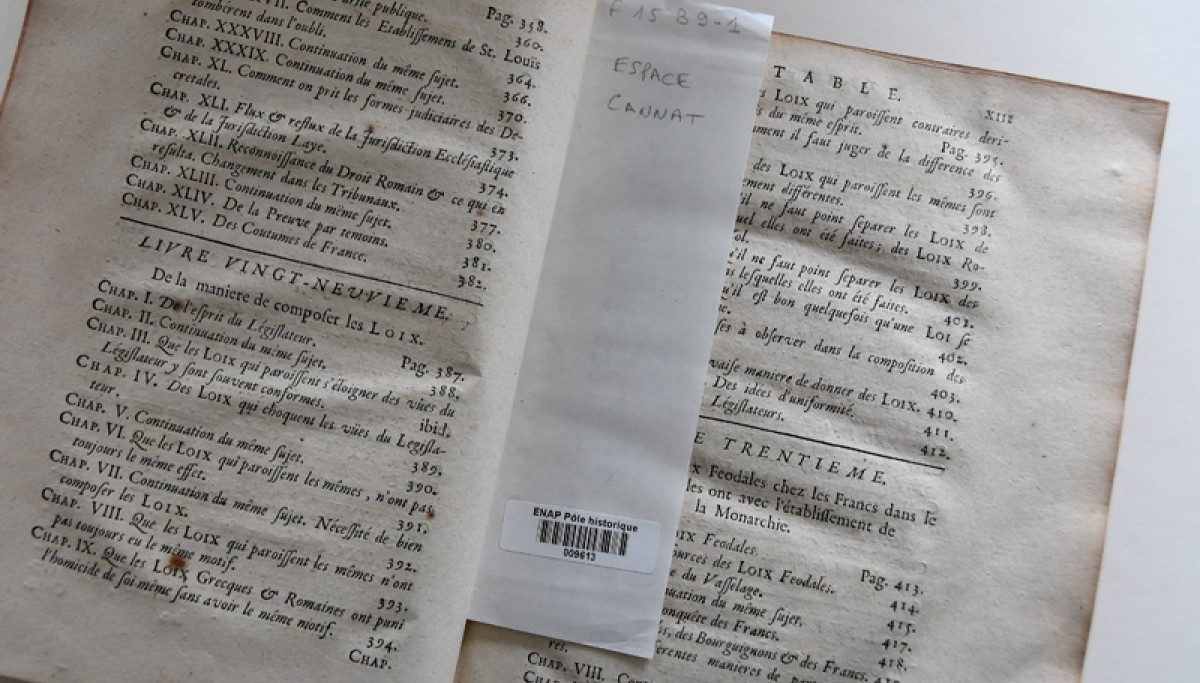 Pag. 358.
tomberent dans l'oubli.
360.
CHAP. XXXVIII. Continuation du même sujet.
364.
CHAP. XXXIX. Continuation du même sujet.
366.
CHAP. XL. Comment on prit les formes judiciaires des De-
cretales.
370.
CHAP. XLI. Flux & reflux de la Jurisdiction Ecclésiastique
& de la Jurisdiction Laye.
373.
CHAP. XLII. Reconnoissance du Droit Romain & ce qui en
resulta. Changement dans les Tribunaux.
374.
CHAP. XLIII. Continuation du même sujet.
377.
CHAP. XLIV. De la Preuve par temoins.
380.
CHAP. XLV. Des Coutumes de France.
381.
382.
LIVRE VINGT-NEUVIEME.
De la maniere de composer les LOIX.
CHAP. I. De l'esprit du Législateur.
Pag. 387.
CHAP. II. Continuation du même sujet.
388.
CHAP. III. Que les LOIX qui paroissent s'éloigner des vües du
Législateur y sont souvent conformes.
ibid.
CHAP. IV. Des LOIX qui choquent les vües du Legisla-
teur.
389.
CHAP. V. Continuation du même sujet.
390.
CHAP. VI. Que les LOIX qui paroissent les mêmes, n'ont pas
toujours le même effet.
391.
CHAP. VII. Continuation du même sujet. Nécessité de bien
composer les LOIX.
392.
CHAP. VIII. Que les LOIX qui paroissent les mêmes n'ont
pas toujours eu le même motif.
393.
CHAP. IX. Que les LOIX Grecques & Romaines ont puni
l'homicide de soi même sans avoir le même motif.
394.
CHAP.
F 15 B9-1
ESPACE
CANNAT
ENAP Pôle historique
009613
TABLE.
XIII
LOIX qui paroissent contraires deri-
du même esprit.
Pag. 395.
il faut juger de la difference des
396.
des LOIX qui paroissent les mêmes sont
différentes.
398.
il ne faut point separer les LOIX de
elles ont été faites; des LOIX Ro-
399.
qu'il ne faut point separer les LOIX des
lesquelles elles ont été faites.
401.
qu'il est bon quelquefois qu'une LOI se
402.
à observer dans la composition des
403.
maniere de donner des LOIX.
410.
Des idées d'uniformité.
411.
Législateurs.
412.
TRENTIEME.
Feodales chez les Francs dans le
ont avec l'établissement de
la Monarchie.
Feodales.
Pag. 413.
des LOIX Feodales.
414.
du Vasselage.
415.
du même sujet.
417.
des Francs.
418.
des Bourguignons & des Francs.
manieres de
CHAP. VIII.